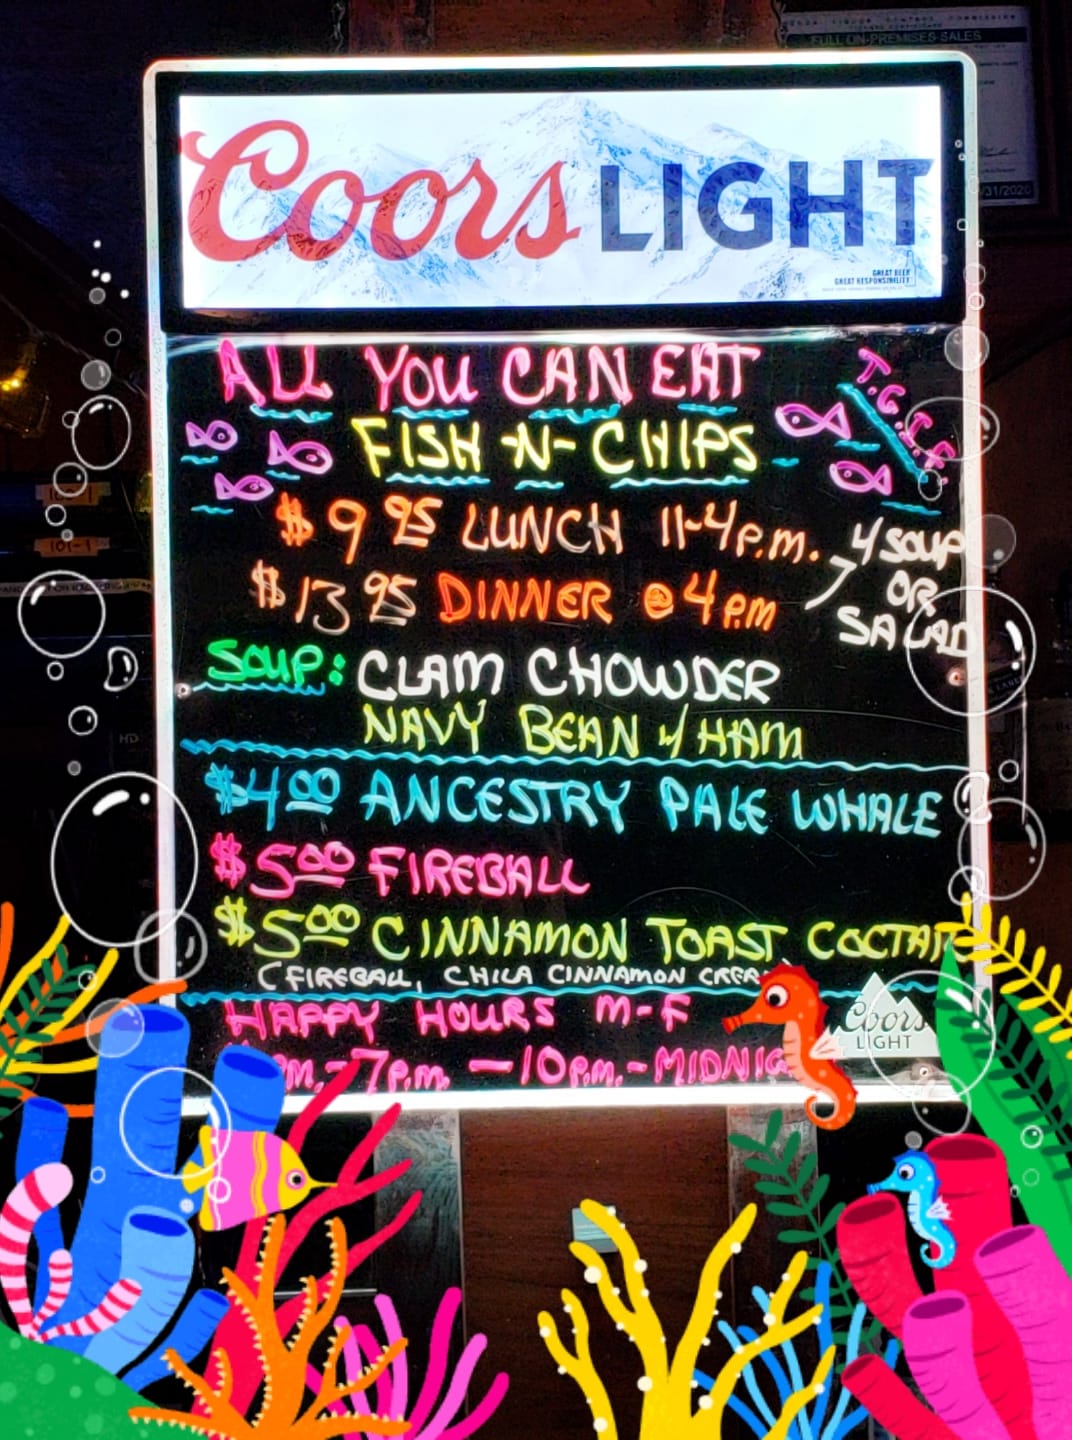 FULL ON-PREMISES SALES
/31/2020
Coors LIGHT
GREAT BEER
GREAT RESPONSIBILITY
ALL YOU CAN EAT
T.G.I.F.
FISH -N- CHIPS
$9 95 LUNCH 11-4 p.m.
$13 95 DINNER @ 4 pm
W/ SOUP
OR
SALAD
SOUP: CLAM CHOWDER
NAVY BEAN W/ HAM
$4 00 ANCESTRY PALE WHALE
$5 00 FIREBALL
$5 00 CINNAMON TOAST COCTAIL
(FIREBALL, CHILA CINNAMON CREA
HAPPY HOURS M-F
pm.-7p.m. -10p.m.-MIDNIG
Coors
LIGHT